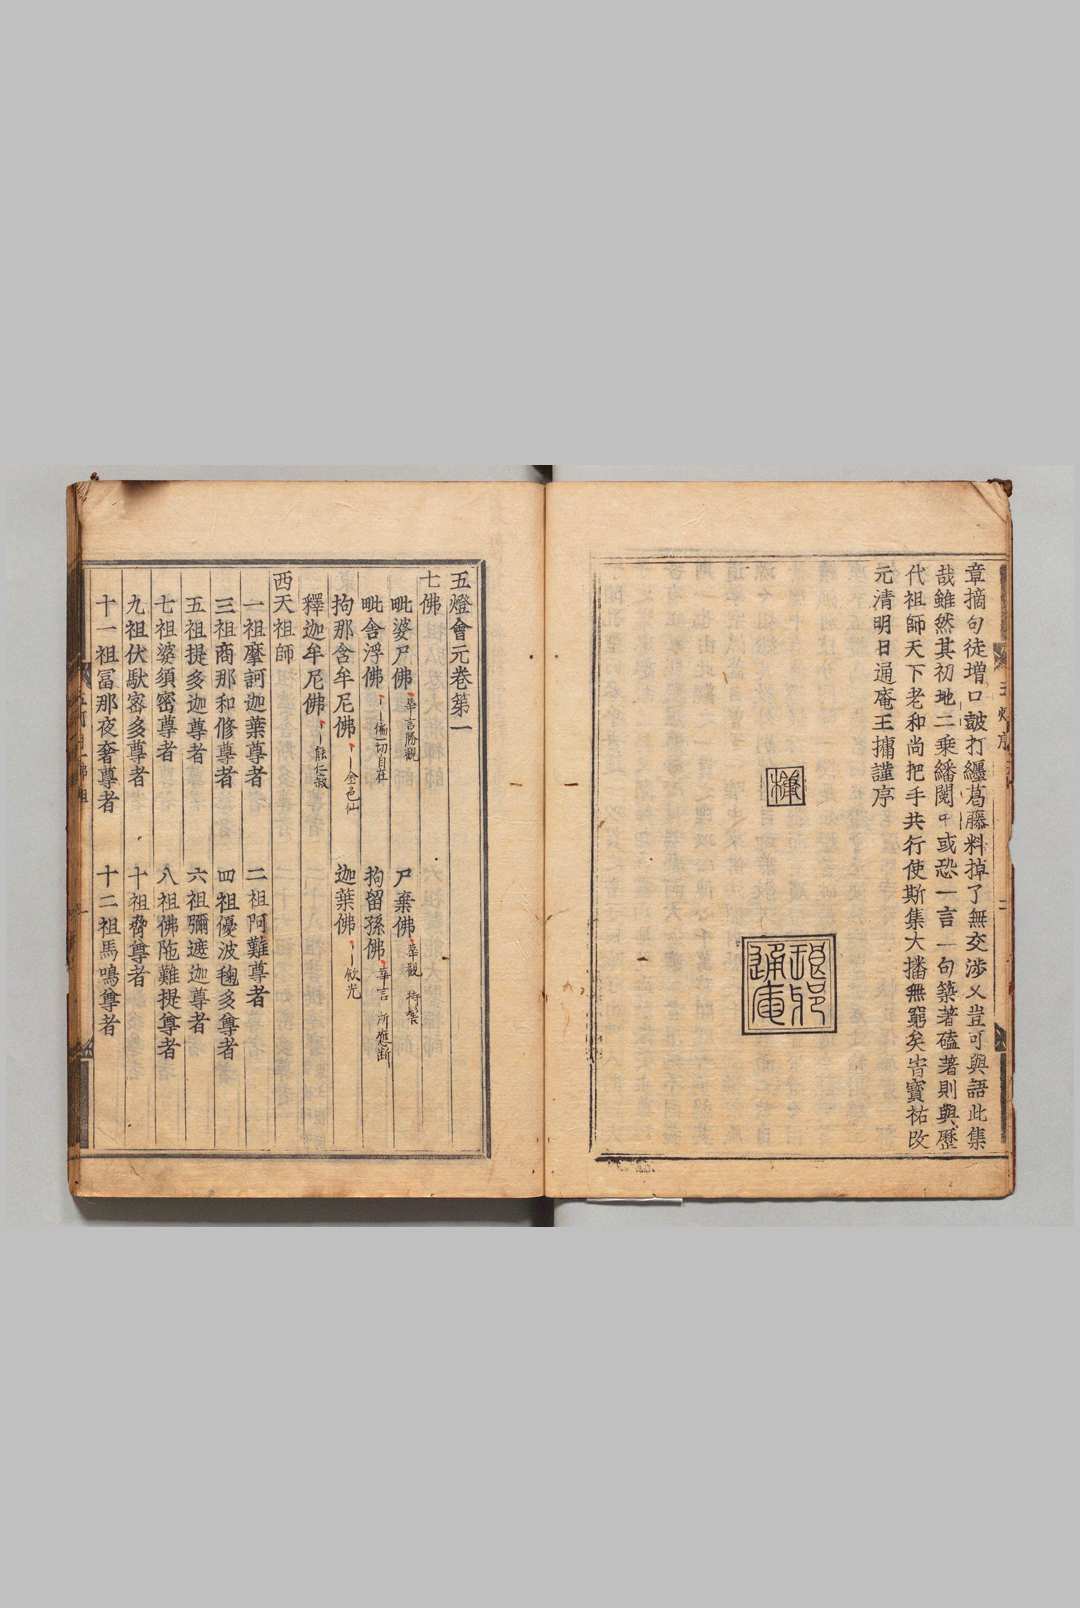 章摘句徒增口皷打纏葛藤料掉了無交涉乂豈可與語此集
哉雖然其初地二乘繙閱中或恐一言一句築著磕著則與歷
代祖師天下老和尚把手共行使斯集大播無窮矣旹寶祐改
元清明日通庵王擴謹序
通庵
五燈會元卷第一
七佛
毗婆尸佛 華言勝觀
尸棄佛 華觀 持髻
毗舍浮佛 徧一切自在
拘留孫佛 華言 所應断
拘那含牟尼佛 金色仙
迦葉佛 飲光
釋迦牟尼佛 能仁寂
西天祖師
一祖摩訶迦葉尊者
二祖阿難尊者
三祖商那和修尊者
四祖優波毱多尊者
五祖提多迦尊者
六祖彌遮迦尊者
七祖婆須密尊者
八祖佛陁難提尊者
九祖伏馱密多尊者
十祖脅尊者
十一祖冨那夜奢尊者
十二祖馬鳴尊者